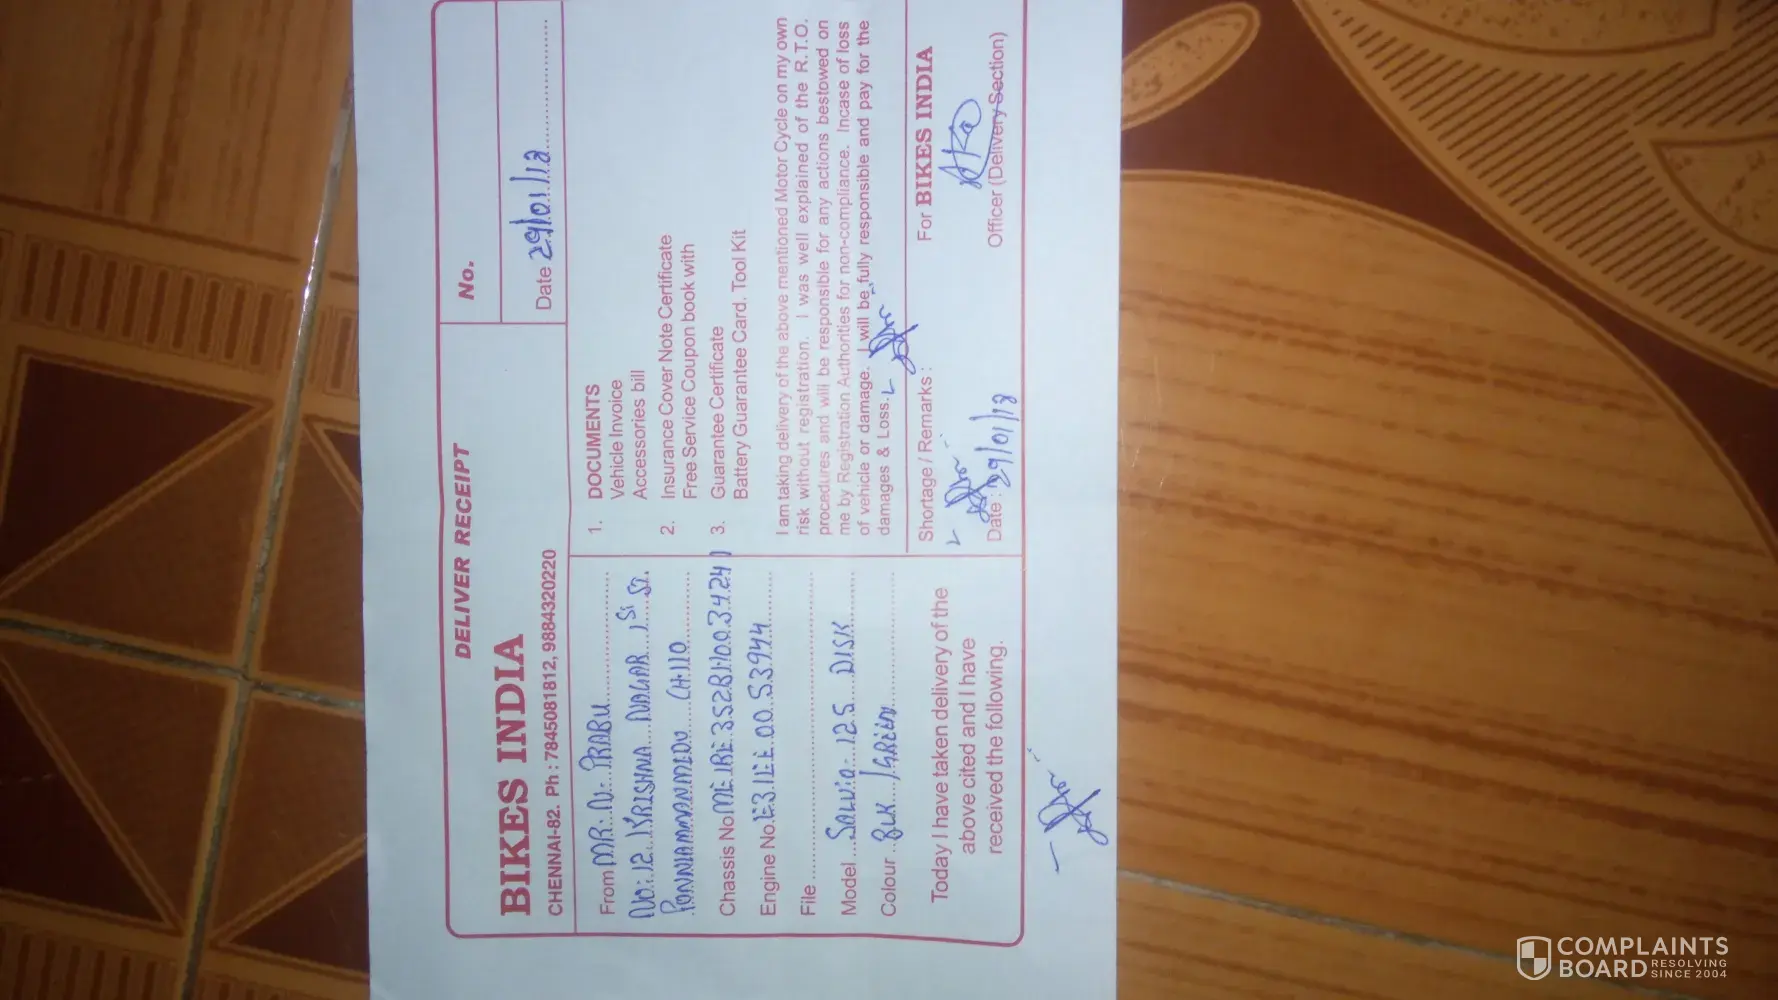 DELIVER RECEIPT
BIKES INDIA
CHENNAI-82. Ph : 7845081812, 9884320220
No.
Date 29/01/12
From MR. N. PRABU
No: 12. KRISHNA NAGAR 1st ST.
PONNIAMMANMEDU CH.110
Chassis No ME1RE352B1100 34241
Engine No. E31EE0053944
File
Model Saluto 125 DISK
Colour BLK / GREEN
Today I have taken delivery of the
above cited and I have
received the following.
1. DOCUMENTS
Vehicle Invoice
Accessories bill
2. Insurance Cover Note Certificate
Free Service Coupon book with
3. Guarantee Certificate
Battery Guarantee Card. Tool Kit
I am taking delivery of the above mentioned Motor Cycle on my own
risk without registration. I was well explained of the R.T.O.
procedures and will be responsible for any actions bestowed on
me by Registration Authorities for non-compliance. Incase of loss
of vehicle or damage. I will be fully responsible and pay for the
damages & Loss.
Shortage / Remarks :
Date : 29/01/12
For BIKES INDIA
Officer (Delivery Section)
COMPLAINTS
BOARD RESOLVING
SINCE 2004